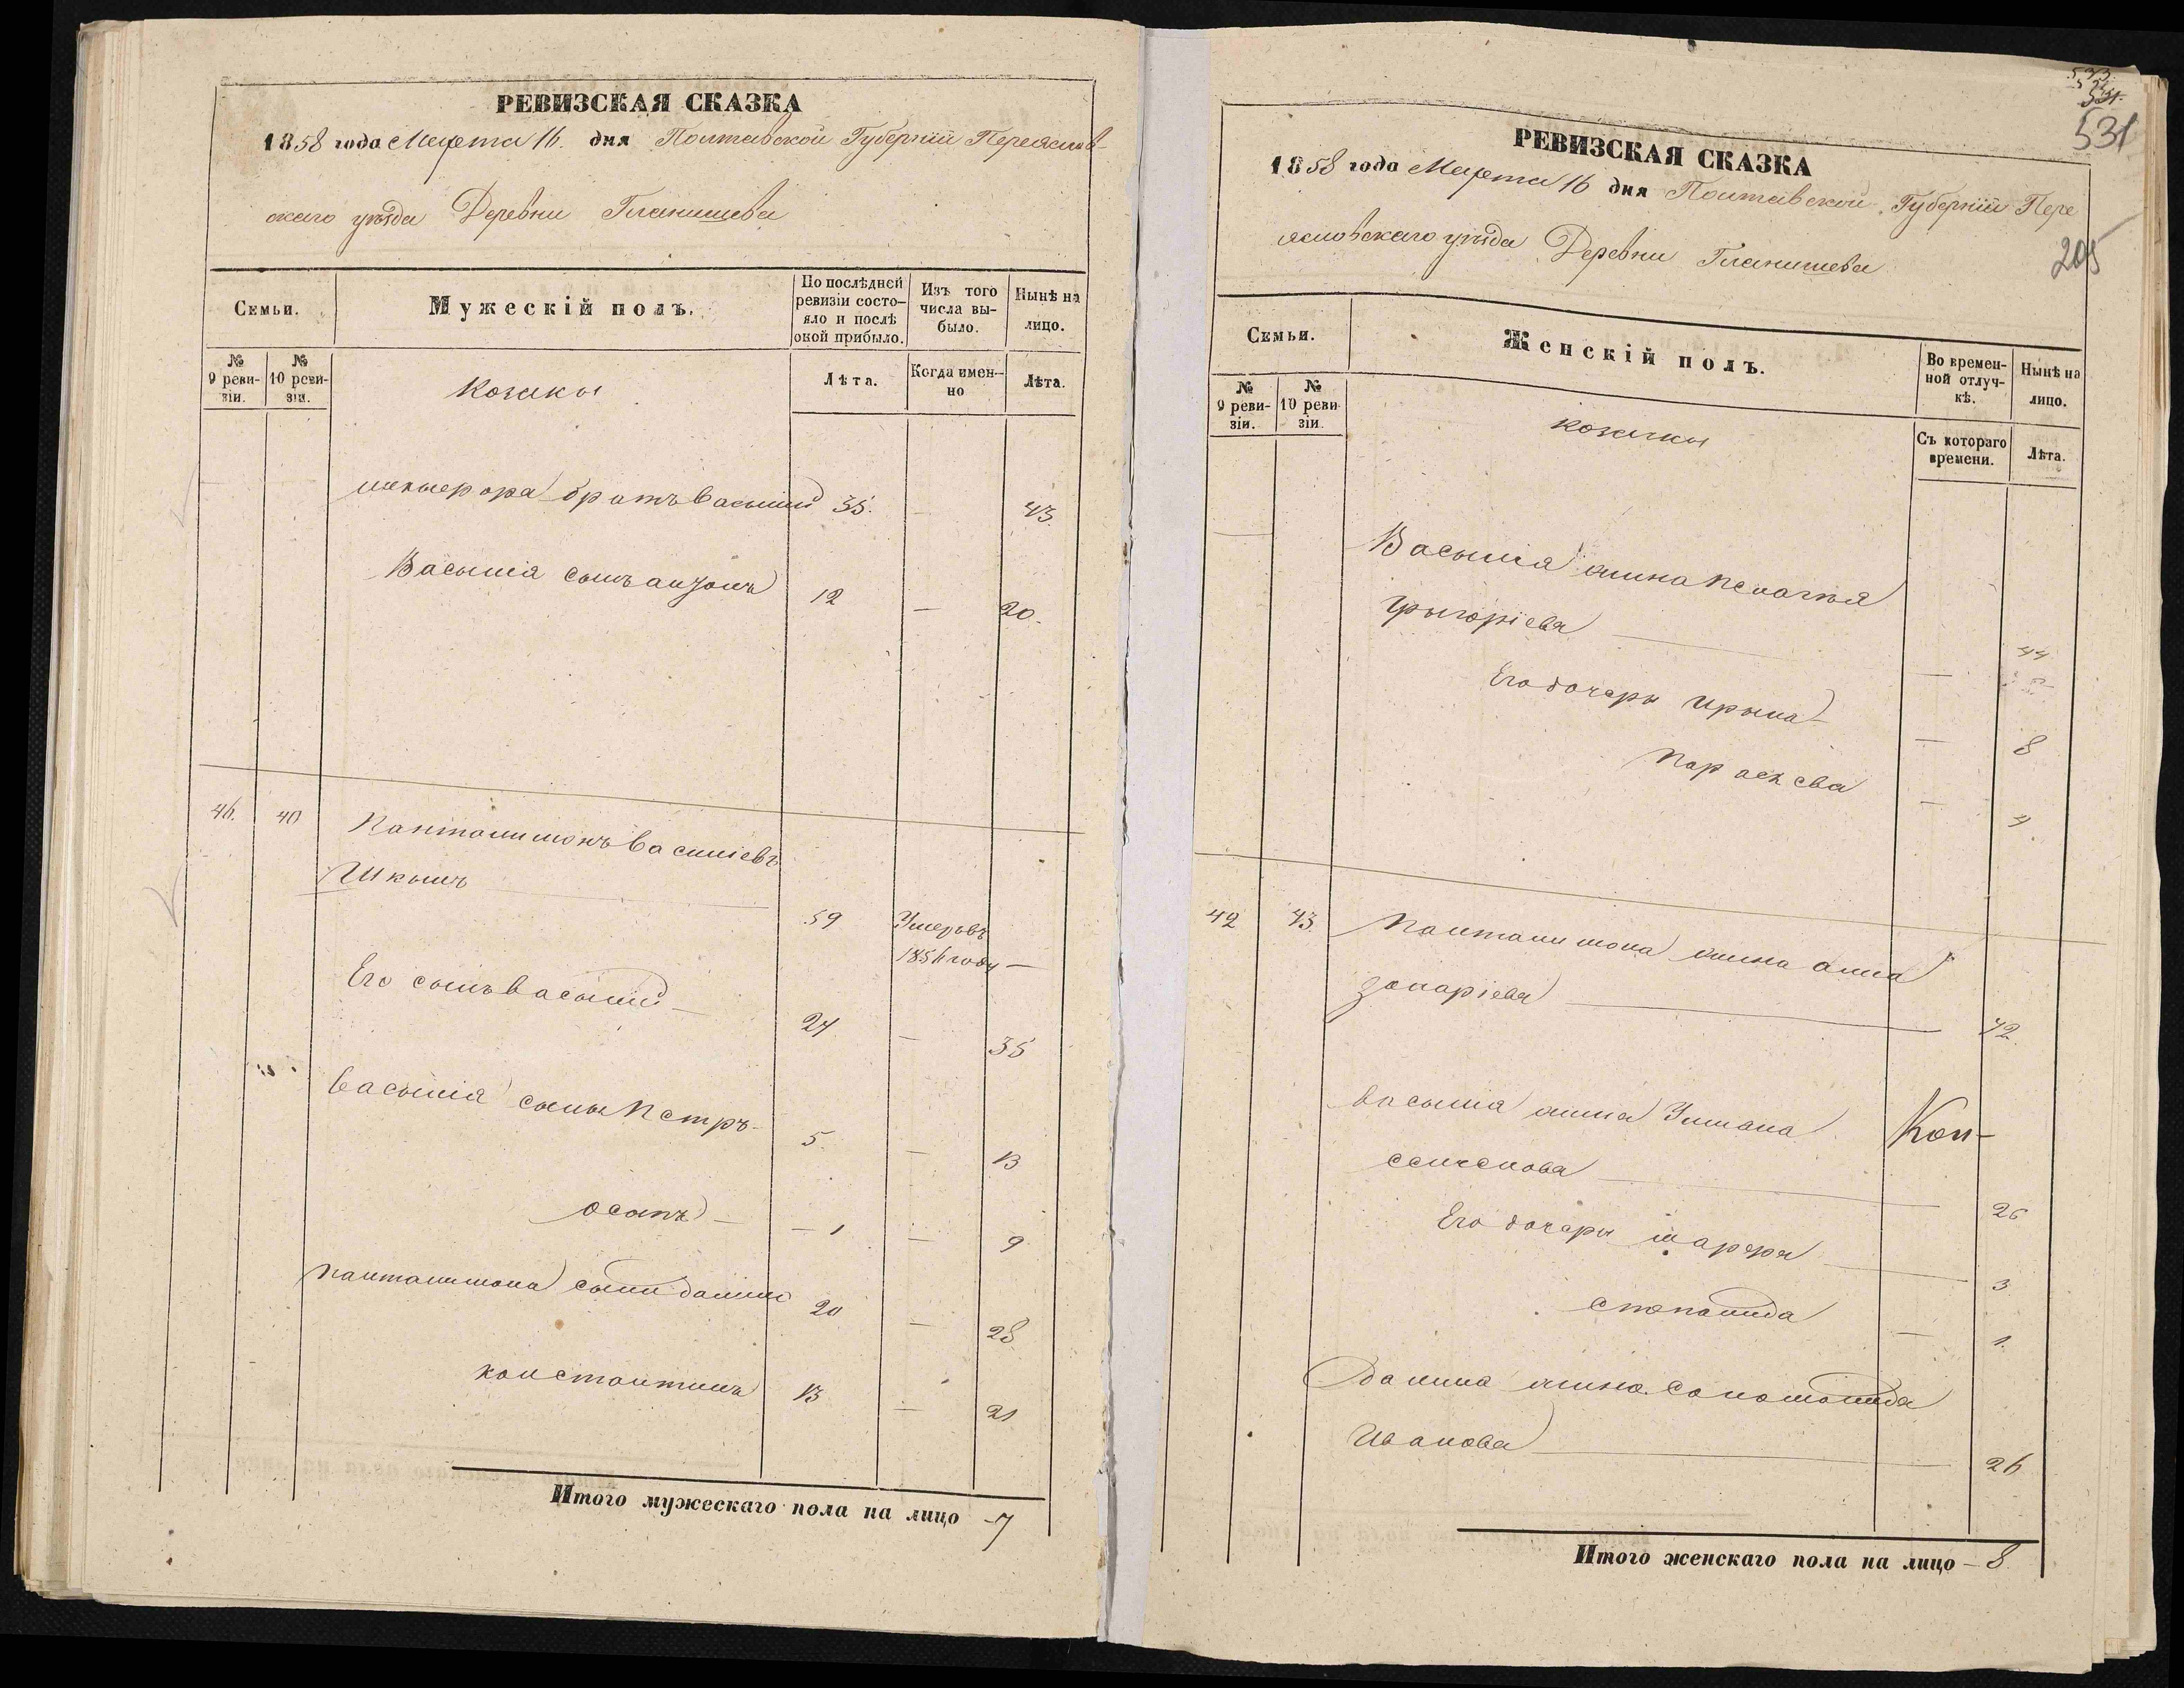 РЕВИЗСКАЯ СКАЗКА
1858 года Марта 16. дня Полтавской Губерніи Переяслов-
скаго уѣзда Деревни
Семьи.
Мужескій полъ.
По послѣдней ревизіи состо-
яло и послѣ оной прибыло.
Изъ того числа вы-
было.
Нынѣ на лицо.
№ 9 реви-
зіи.
№ 10 реви-
зіи.
козаки
Лѣта.
Когда имен-
но
Лѣта.
братъ Василий 35. — 43.
Василія сынъ 12 — 20.
46. 40 Пантолимонъ Василіевъ
59 Умеръ въ
185 году —
Его сынъ Василий — 24 — 35
Василія сыны Петръ — 5 — 13
осипъ — — 1 — 9
Пантолимона сыны данило 20 — 28
константинъ 13 — 21
Итого мужескаго пола на лицо -7
531
РЕВИЗСКАЯ СКАЗКА
1858 года Марта 16 дня Полтавской Губерніи Пере
ясловскаго уѣзда Деревни
205
Семьи.
Женскій полъ.
Во времен-
ной отлуч-
кѣ.
Нынѣ на лицо.
№ 9 реви-
зіи.
№ 10 реви-
зіи.
козачки
Съ котораго времени.
Лѣта.
Василія жина Пелагея
Грыгоріева — — 44
Его дочеры Ирына — — 8
Параскева —
42 43. Пантолимона жина анна
захаріева — 72.
Василия жина Улиана
— 26
Его дочеры марфа — 3.
степанида — 1.
Данила жина Соломонида
Иванова — 26
Итого женскаго пола на лицо - 8